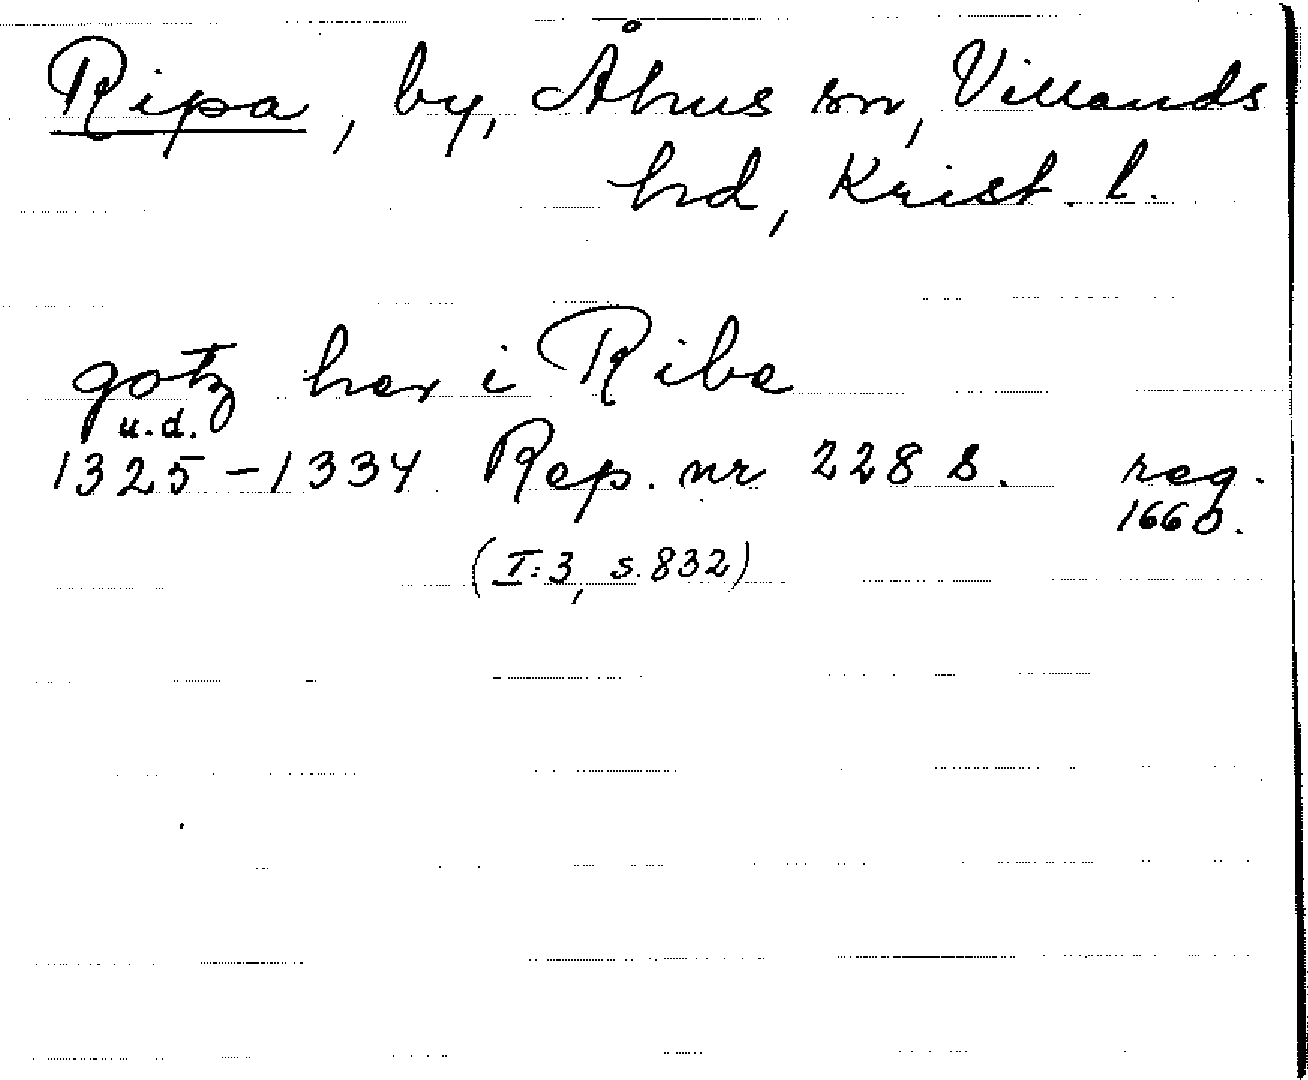 Ripa, by, Åhus sn, Villands
hd, Krist. l.
gotz her i Ribe
u.d.
1325-1334 Rep. nr 228 S. reg.
1660.
(I:3, s. 832)